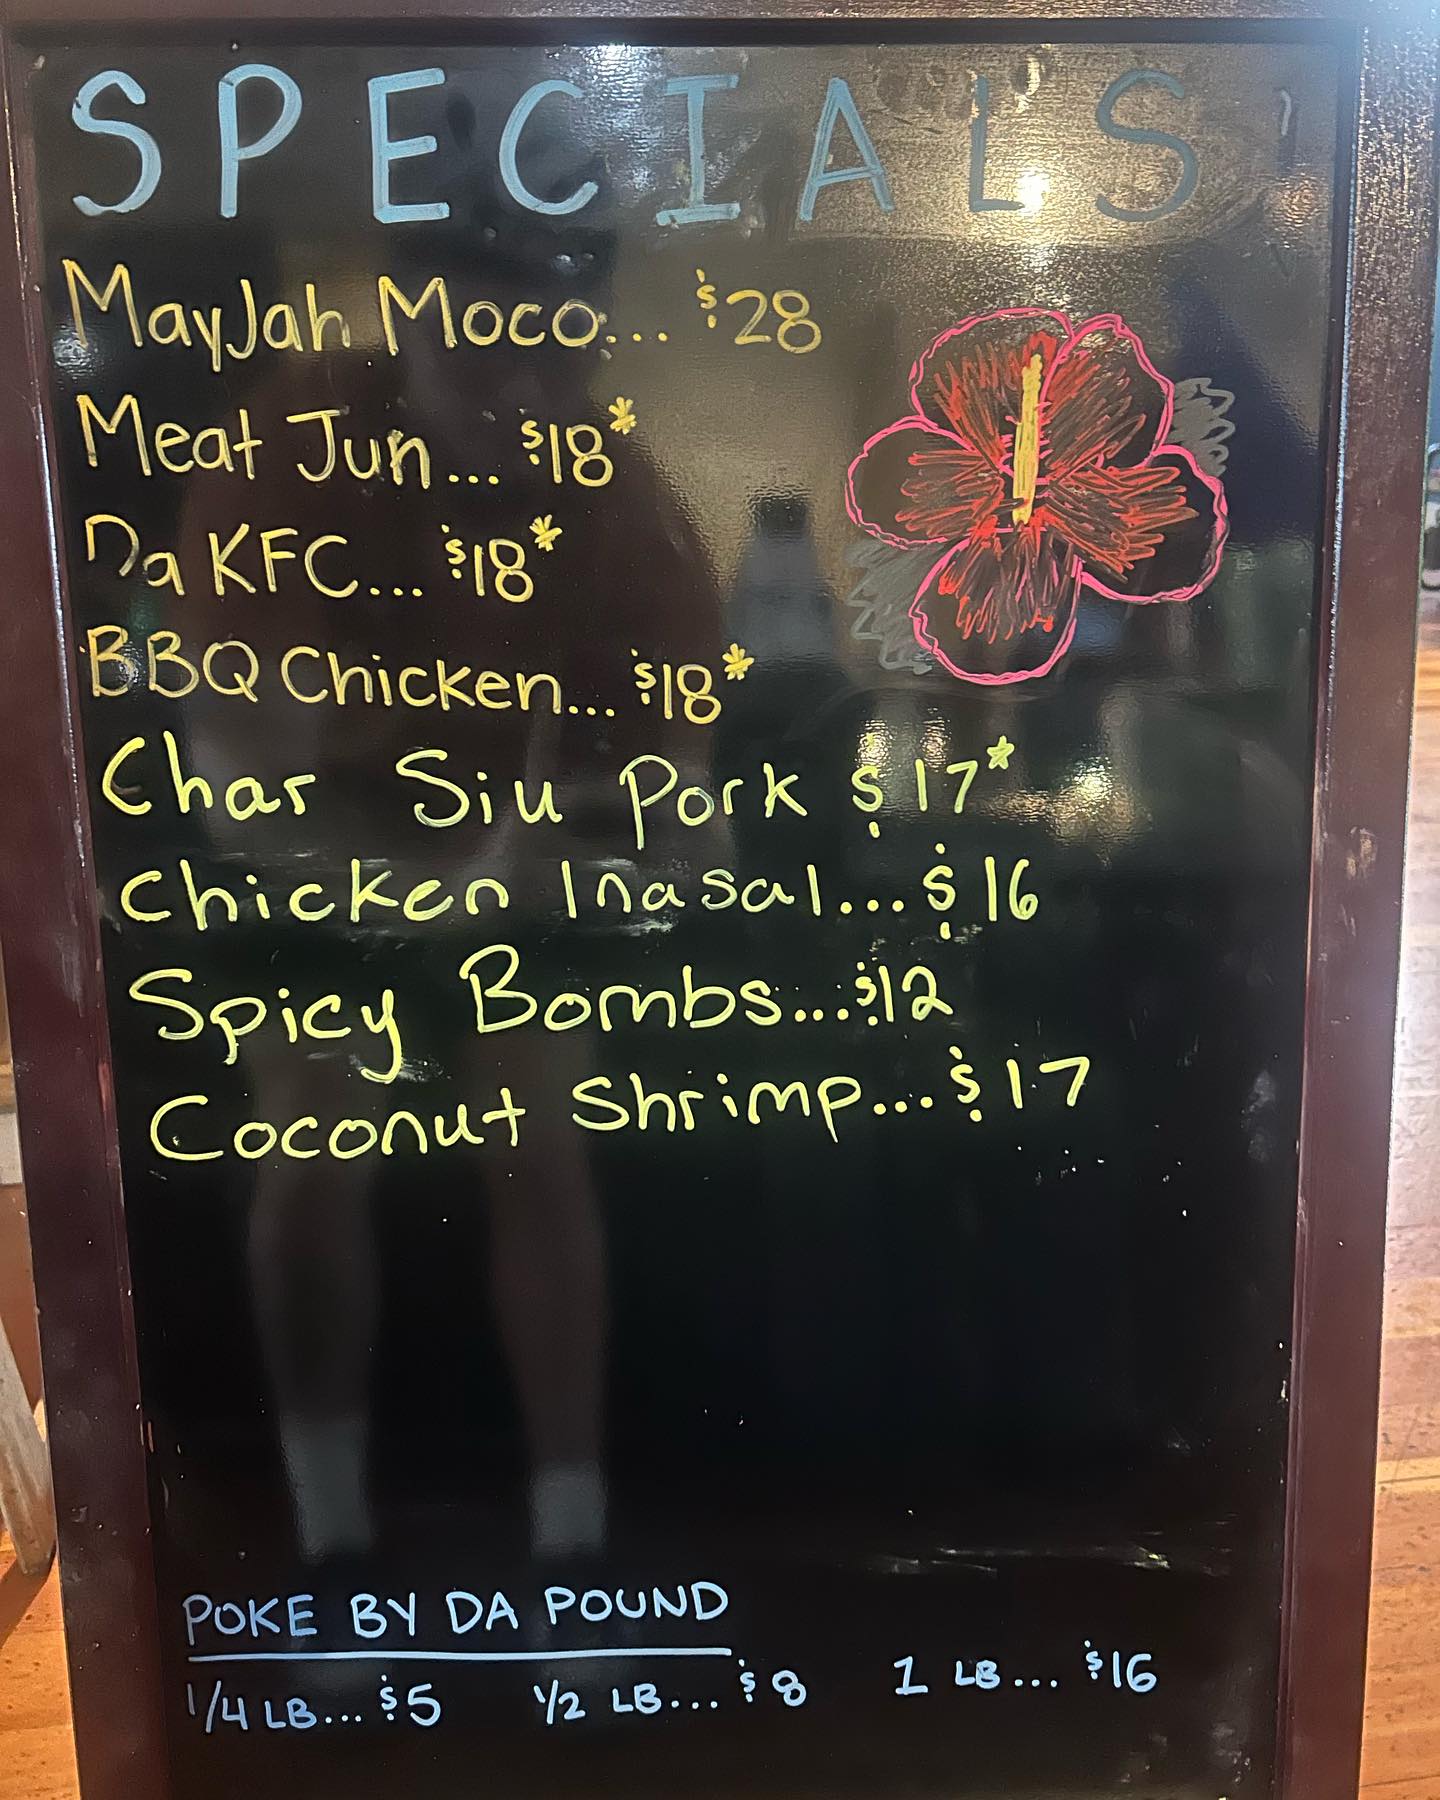 SPECIALS
MayJah Moco... $28
Meat Jun... $18*
Da KFC... $18*
BBQ Chicken... $18*
Char Siu Pork $17*
Chicken Inasal... $16
Spicy Bombs... $12
Coconut Shrimp... $17
POKE BY DA POUND
1/4 LB... $5 1/2 LB... $8 1 LB... $16